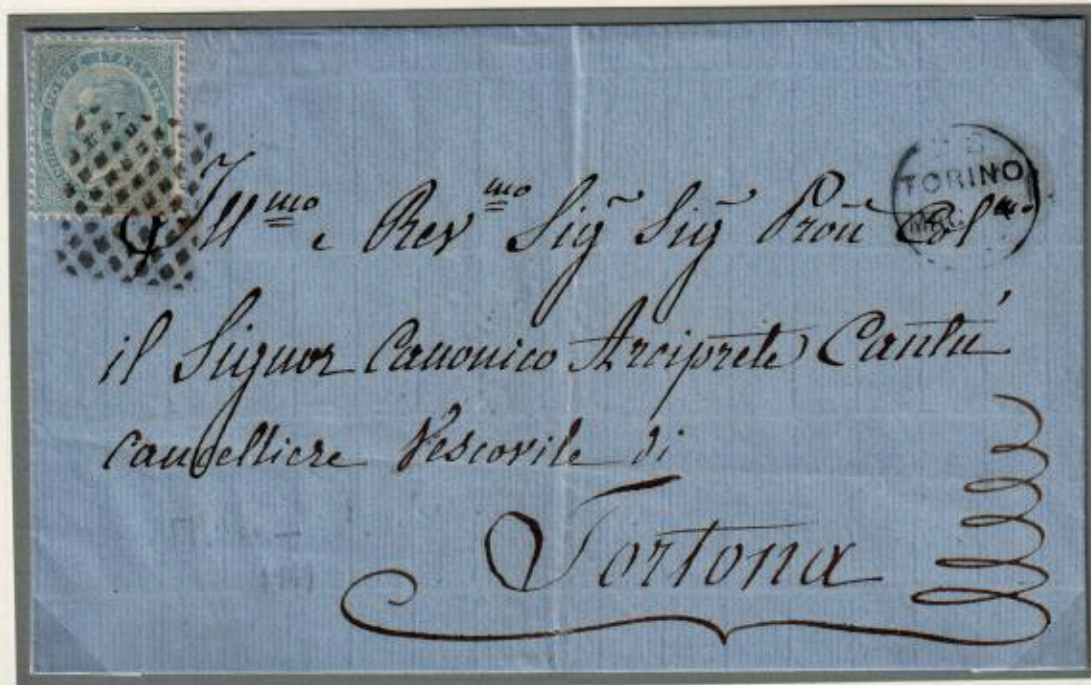 POSTE ITALIANE
TORINO
Ill.mo e Rev.mo Sig Sig Pron Col.mo
il Signor Canonico Arciprete Cantù
Cancelliere Vescovile di
Tortona